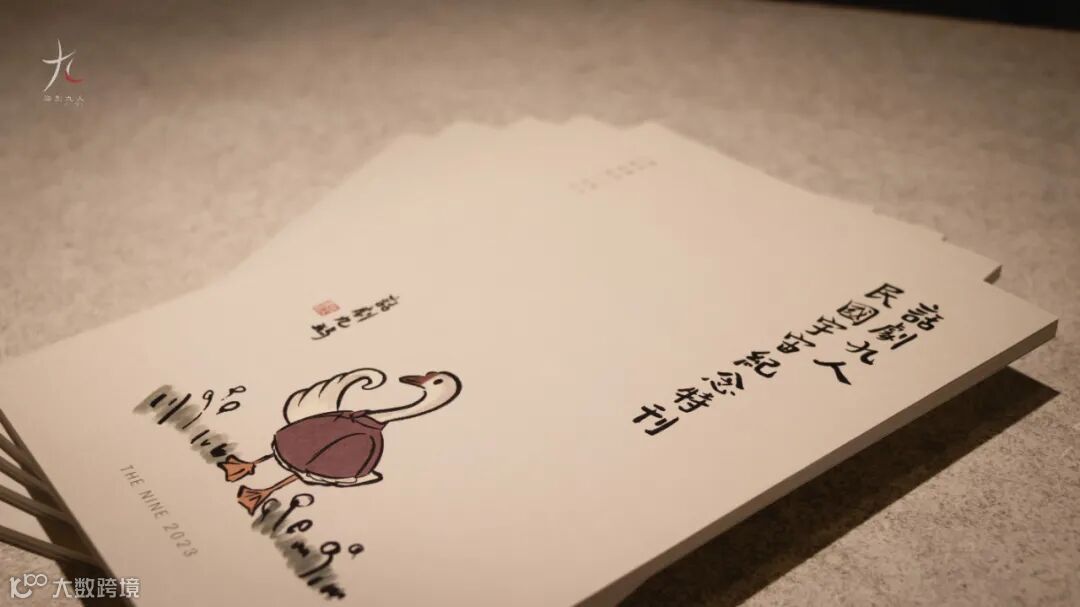 九
話劇九人
話劇九人
民國宇宙
紀念特刊
話劇九
THE NINE 2023
大数跨境